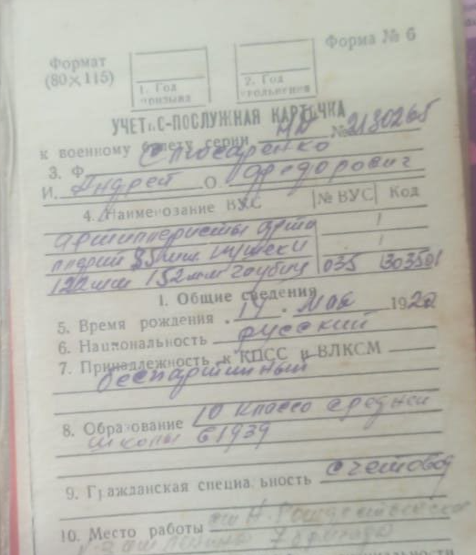 Формат
(80×115)
Форма № 6
1. Год
призыва
2. Год
увольнения
УЧЕТНО-ПОСЛУЖНАЯ КАРТОЧКА
к военному билету серии НП № 2130265
3. Ф.
И. Андрей О. Федорович
4. Наименование ВУС № ВУС Код
артиллеристы арти
ллерии 85 мм. пушеки
122 мм 152 мм гаубиц 035 303501
I. Общие сведения
5. Время рождения 14 мая 1922
6. Национальность русский
7. Принадлежность к КПСС и ВЛКСМ
беспартийный
8. Образование 10 классо средней
школы в 1939
9. Гражданская специальность счетовод
10. Место работы